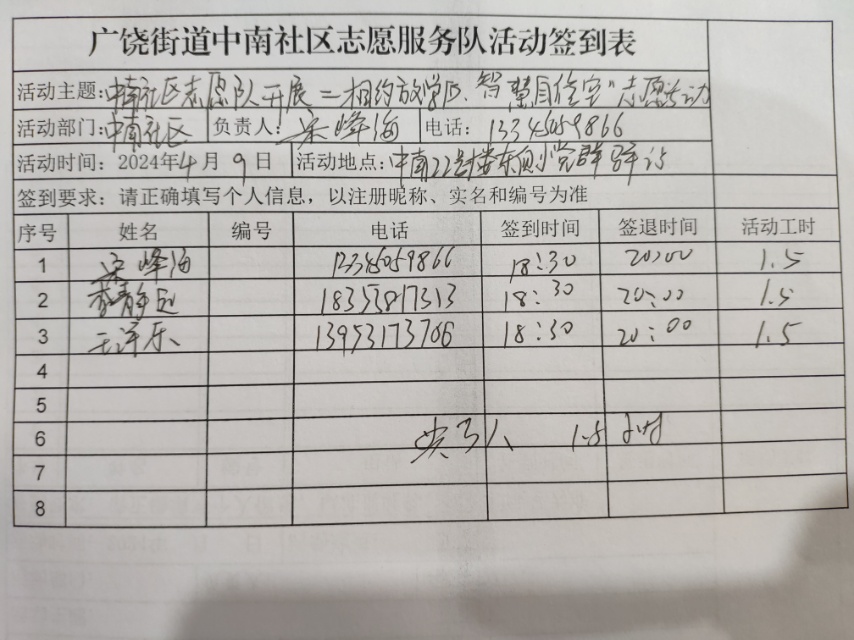 广饶街道中南社区志愿服务队活动签到表
活动主题:中南社区志愿队开展二相约放学后、智慧自住室"志愿活动
活动部门:中南社区 负责人:宋峰海 电话:13345059866
活动时间:2024年4月9日 活动地点:中南22号楼东 党群驿站
签到要求:请正确填写个人信息，以注册昵称、实名和编号为准
序号 姓名 编号 电话 签到时间 签退时间 活动工时
1 宋峰海 13345059866 18:30 20:00 1.5
2 李静 18353817313 18:30 20:00 1.5
3 王泽乐 13953173706 18:30 20:00 1.5
4
5
6 共3人 1.5小时
7
8